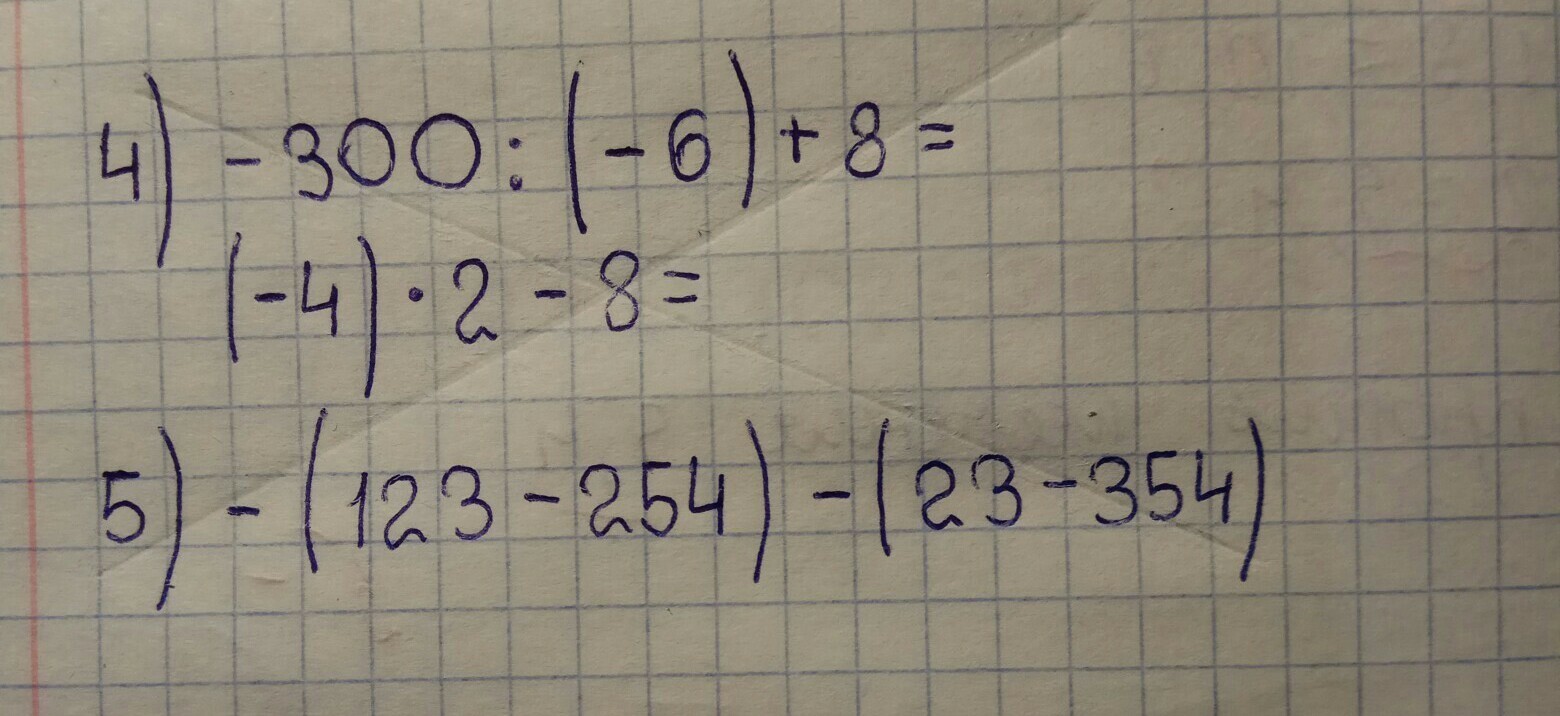 4) -300:(-6)+8=
(-4)·2-8=
5) -(123-254)-(23-354)